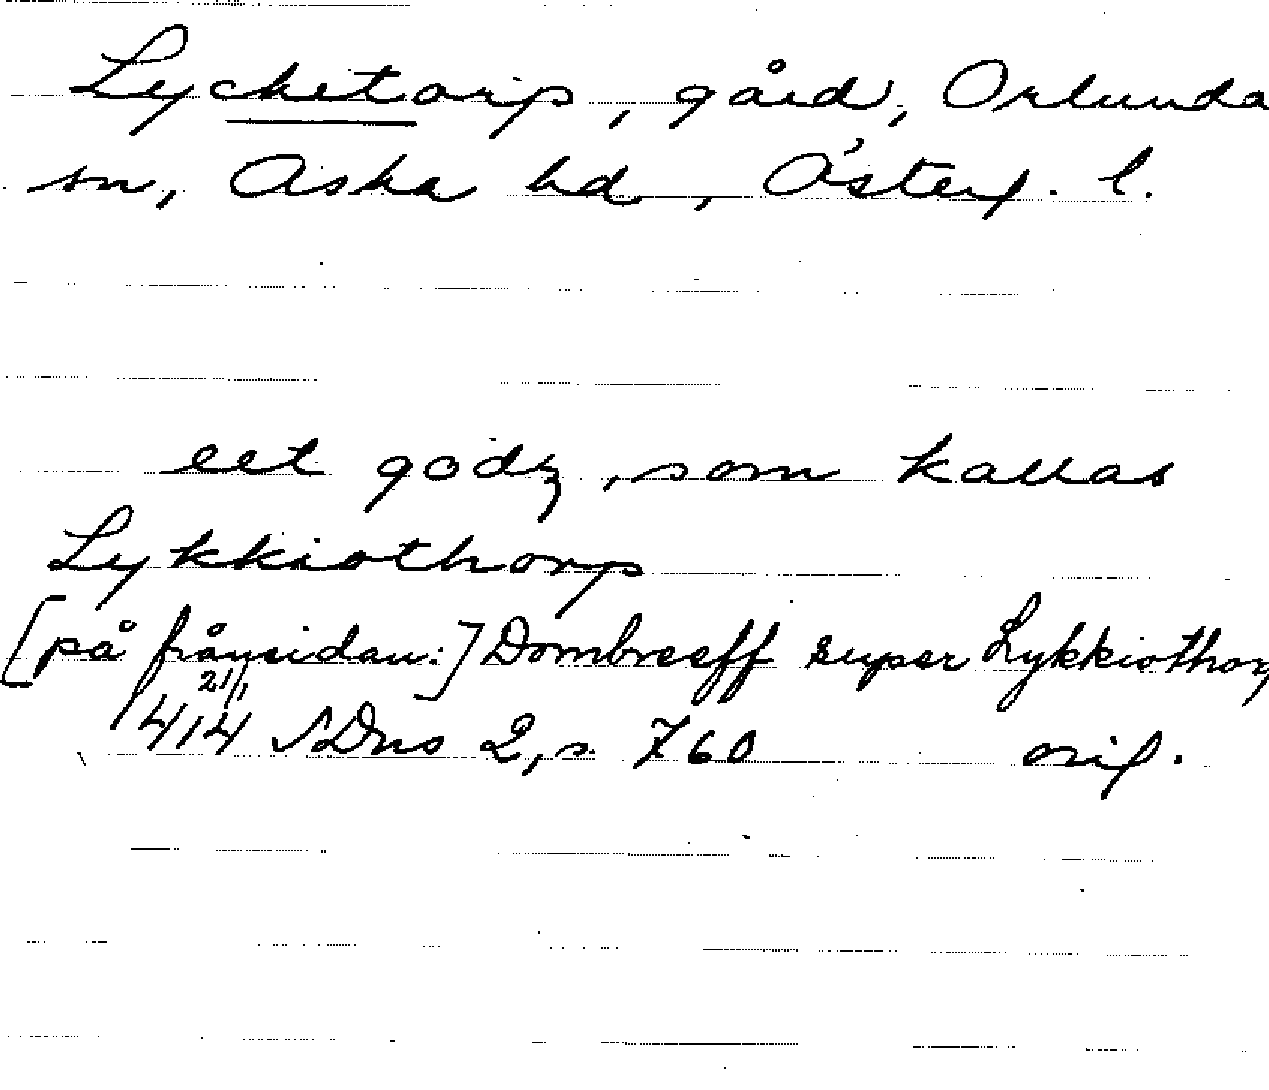 Lycketorp, gård, Orlunda
sn, Aska hd, Österg. l.
eet godz, som kallas
Lykkiothorp
[på frånsidan:] Dombreeff super Lykkiothorp
21/1
1414 SDns 2, s. 760 orig.